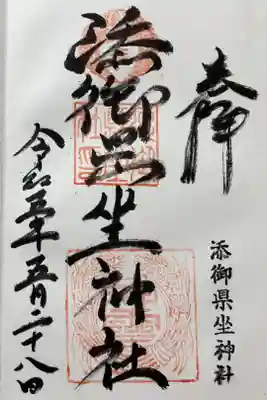 奉拝
添御县坐神社
添御県坐神社
令和五年五月二十八日